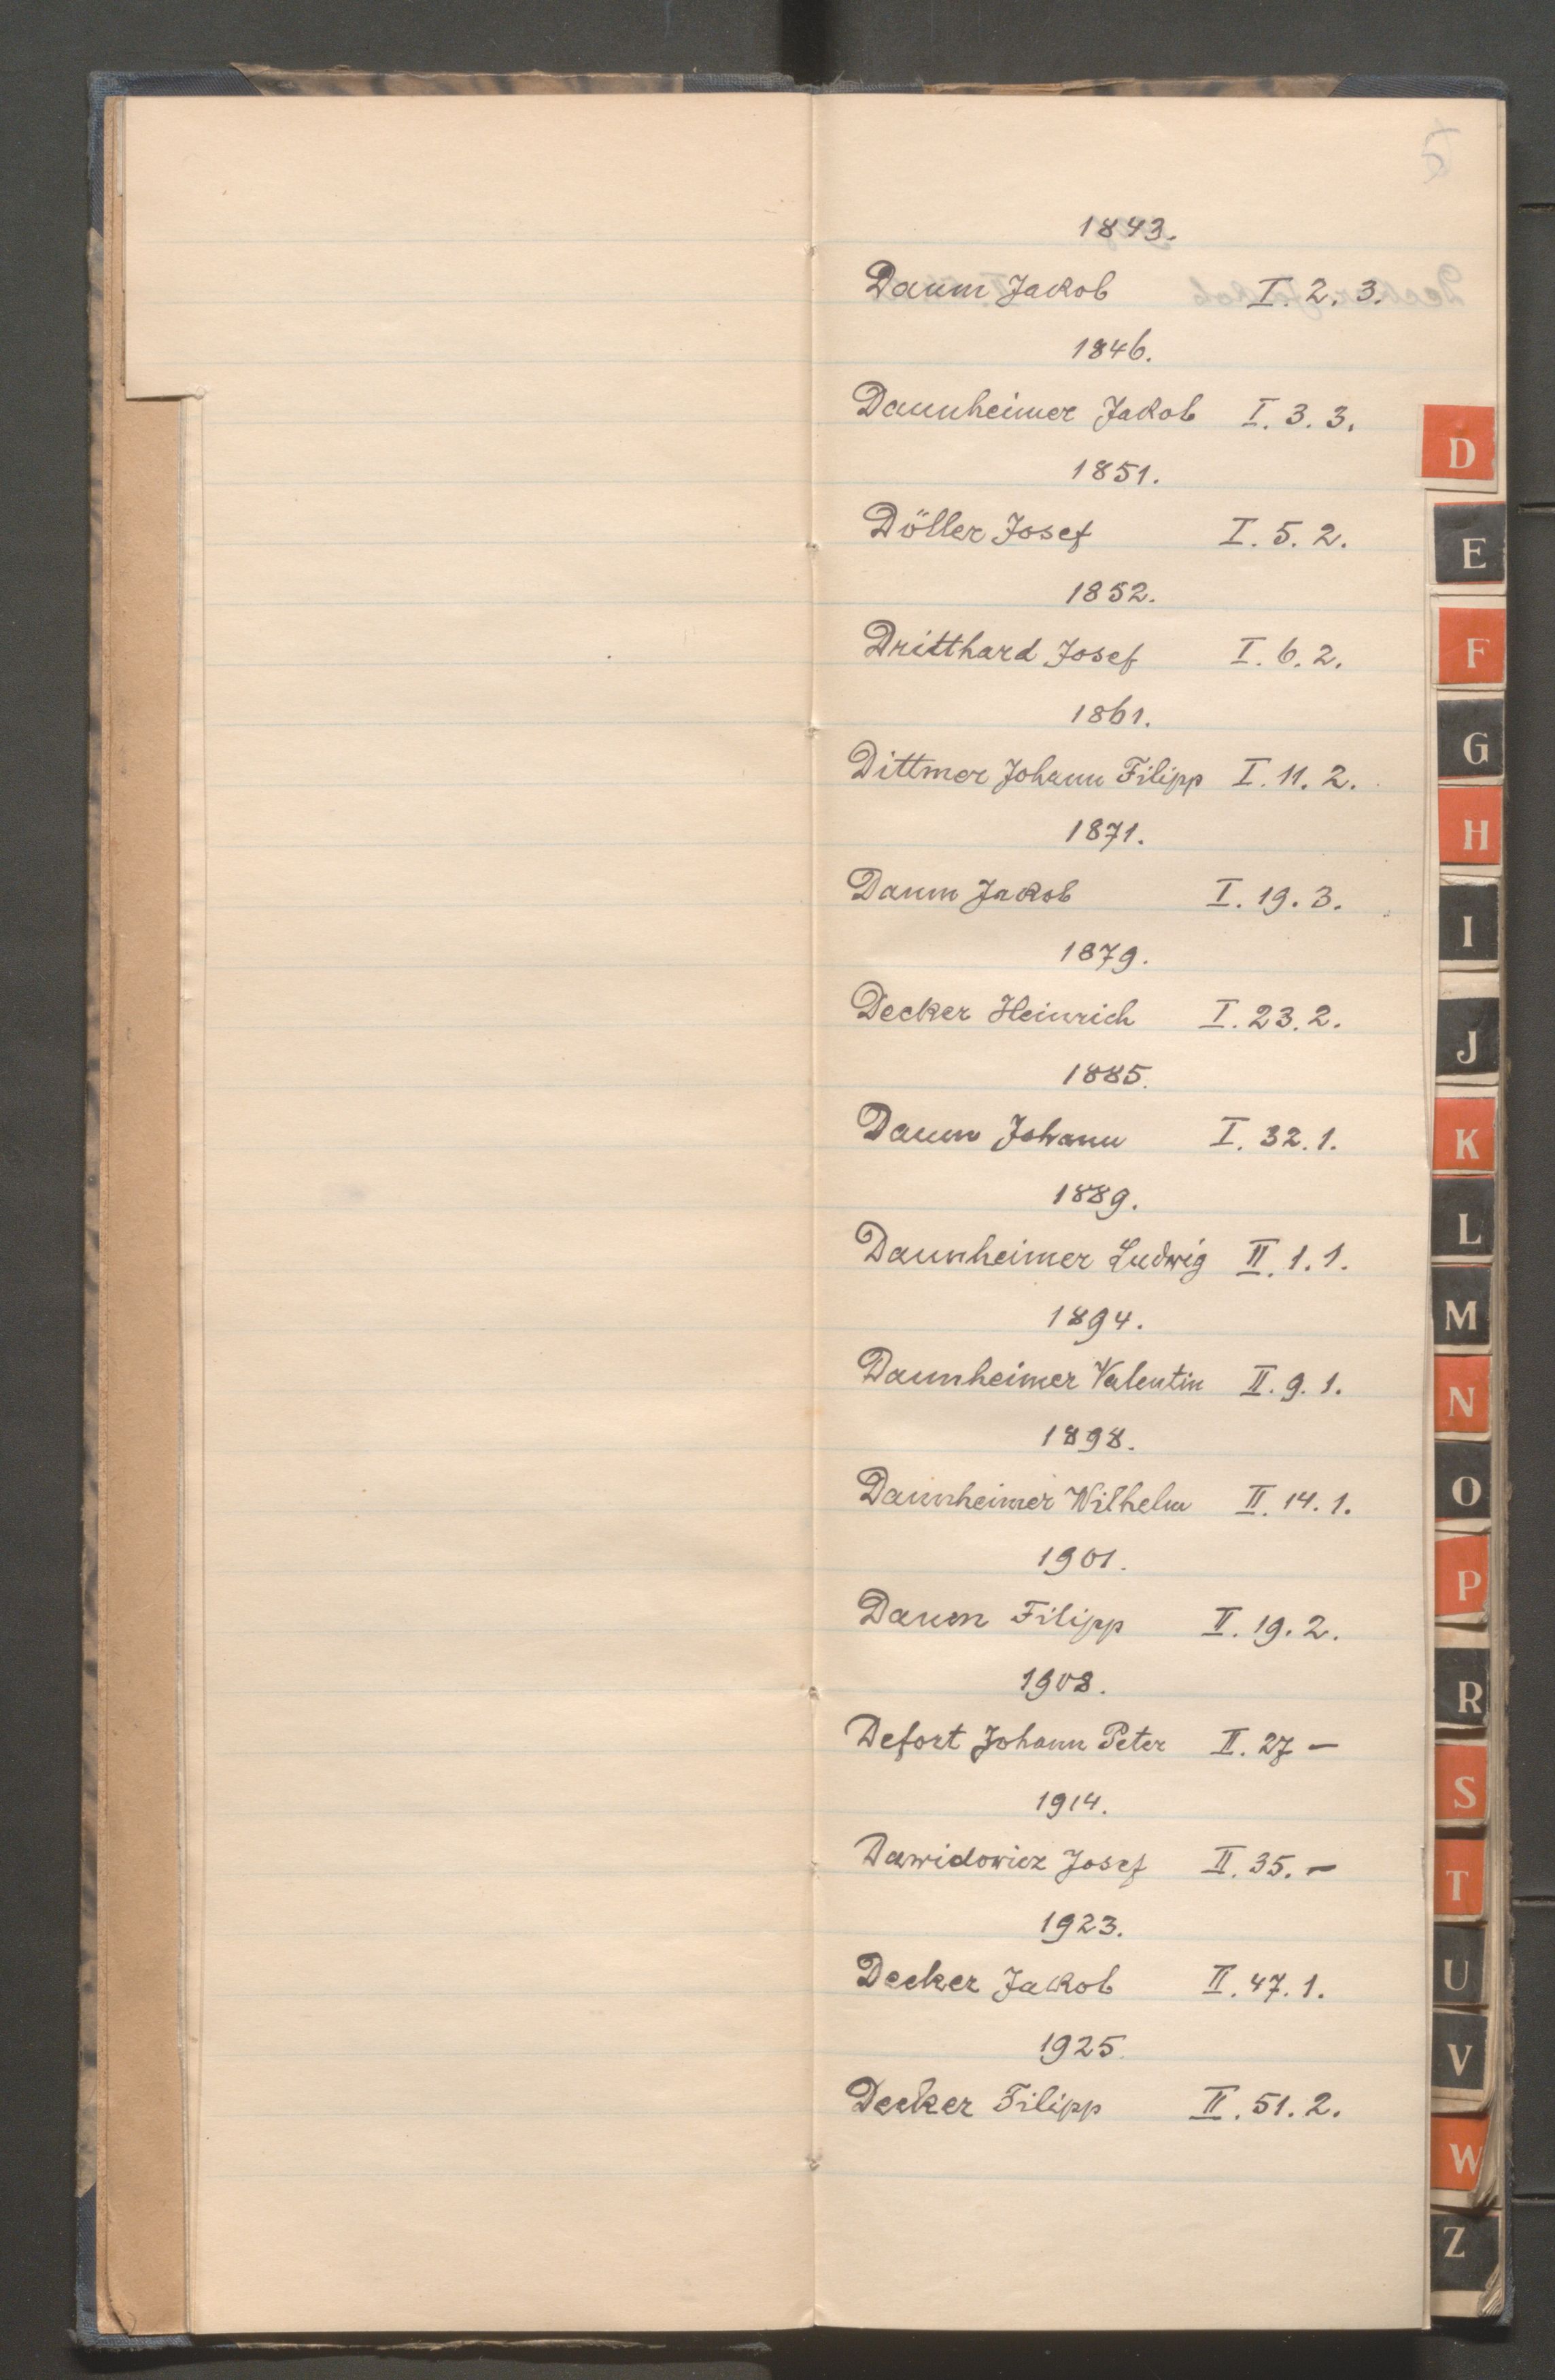 1843.
Daum Jakob I. 2. 3.
1846.
Daunheimer Jakob I. 3. 3.
1851.
Döller Josef I. 5. 2.
1852.
Dritthard Josef I. 6. 2.
1861.
Dittmer Johann Filipp I. 11. 2.
1871.
Daum Jakob I. 19. 3.
1879.
Decker Heinrich I. 23. 2.
1885.
Daum Johann I. 32. 1.
1889.
Daunheimer Ludwig II. 1. 1.
1894.
Daunheimer Valentin II. 9. 1.
1898.
Daunheimer Wilhelm II. 14. 1.
1901.
Daum Filipp II. 19. 2.
1908.
Defort Johann Peter II. 27 –
1914.
Dawidowicz Josef II. 35. –
1923.
Decker Jakob II. 47. 1.
1925.
Decker Filipp II. 51. 2.
D
E
F
G
H
I
J
K
L
M
N
O
P
R
S
T
U
V
W
Z